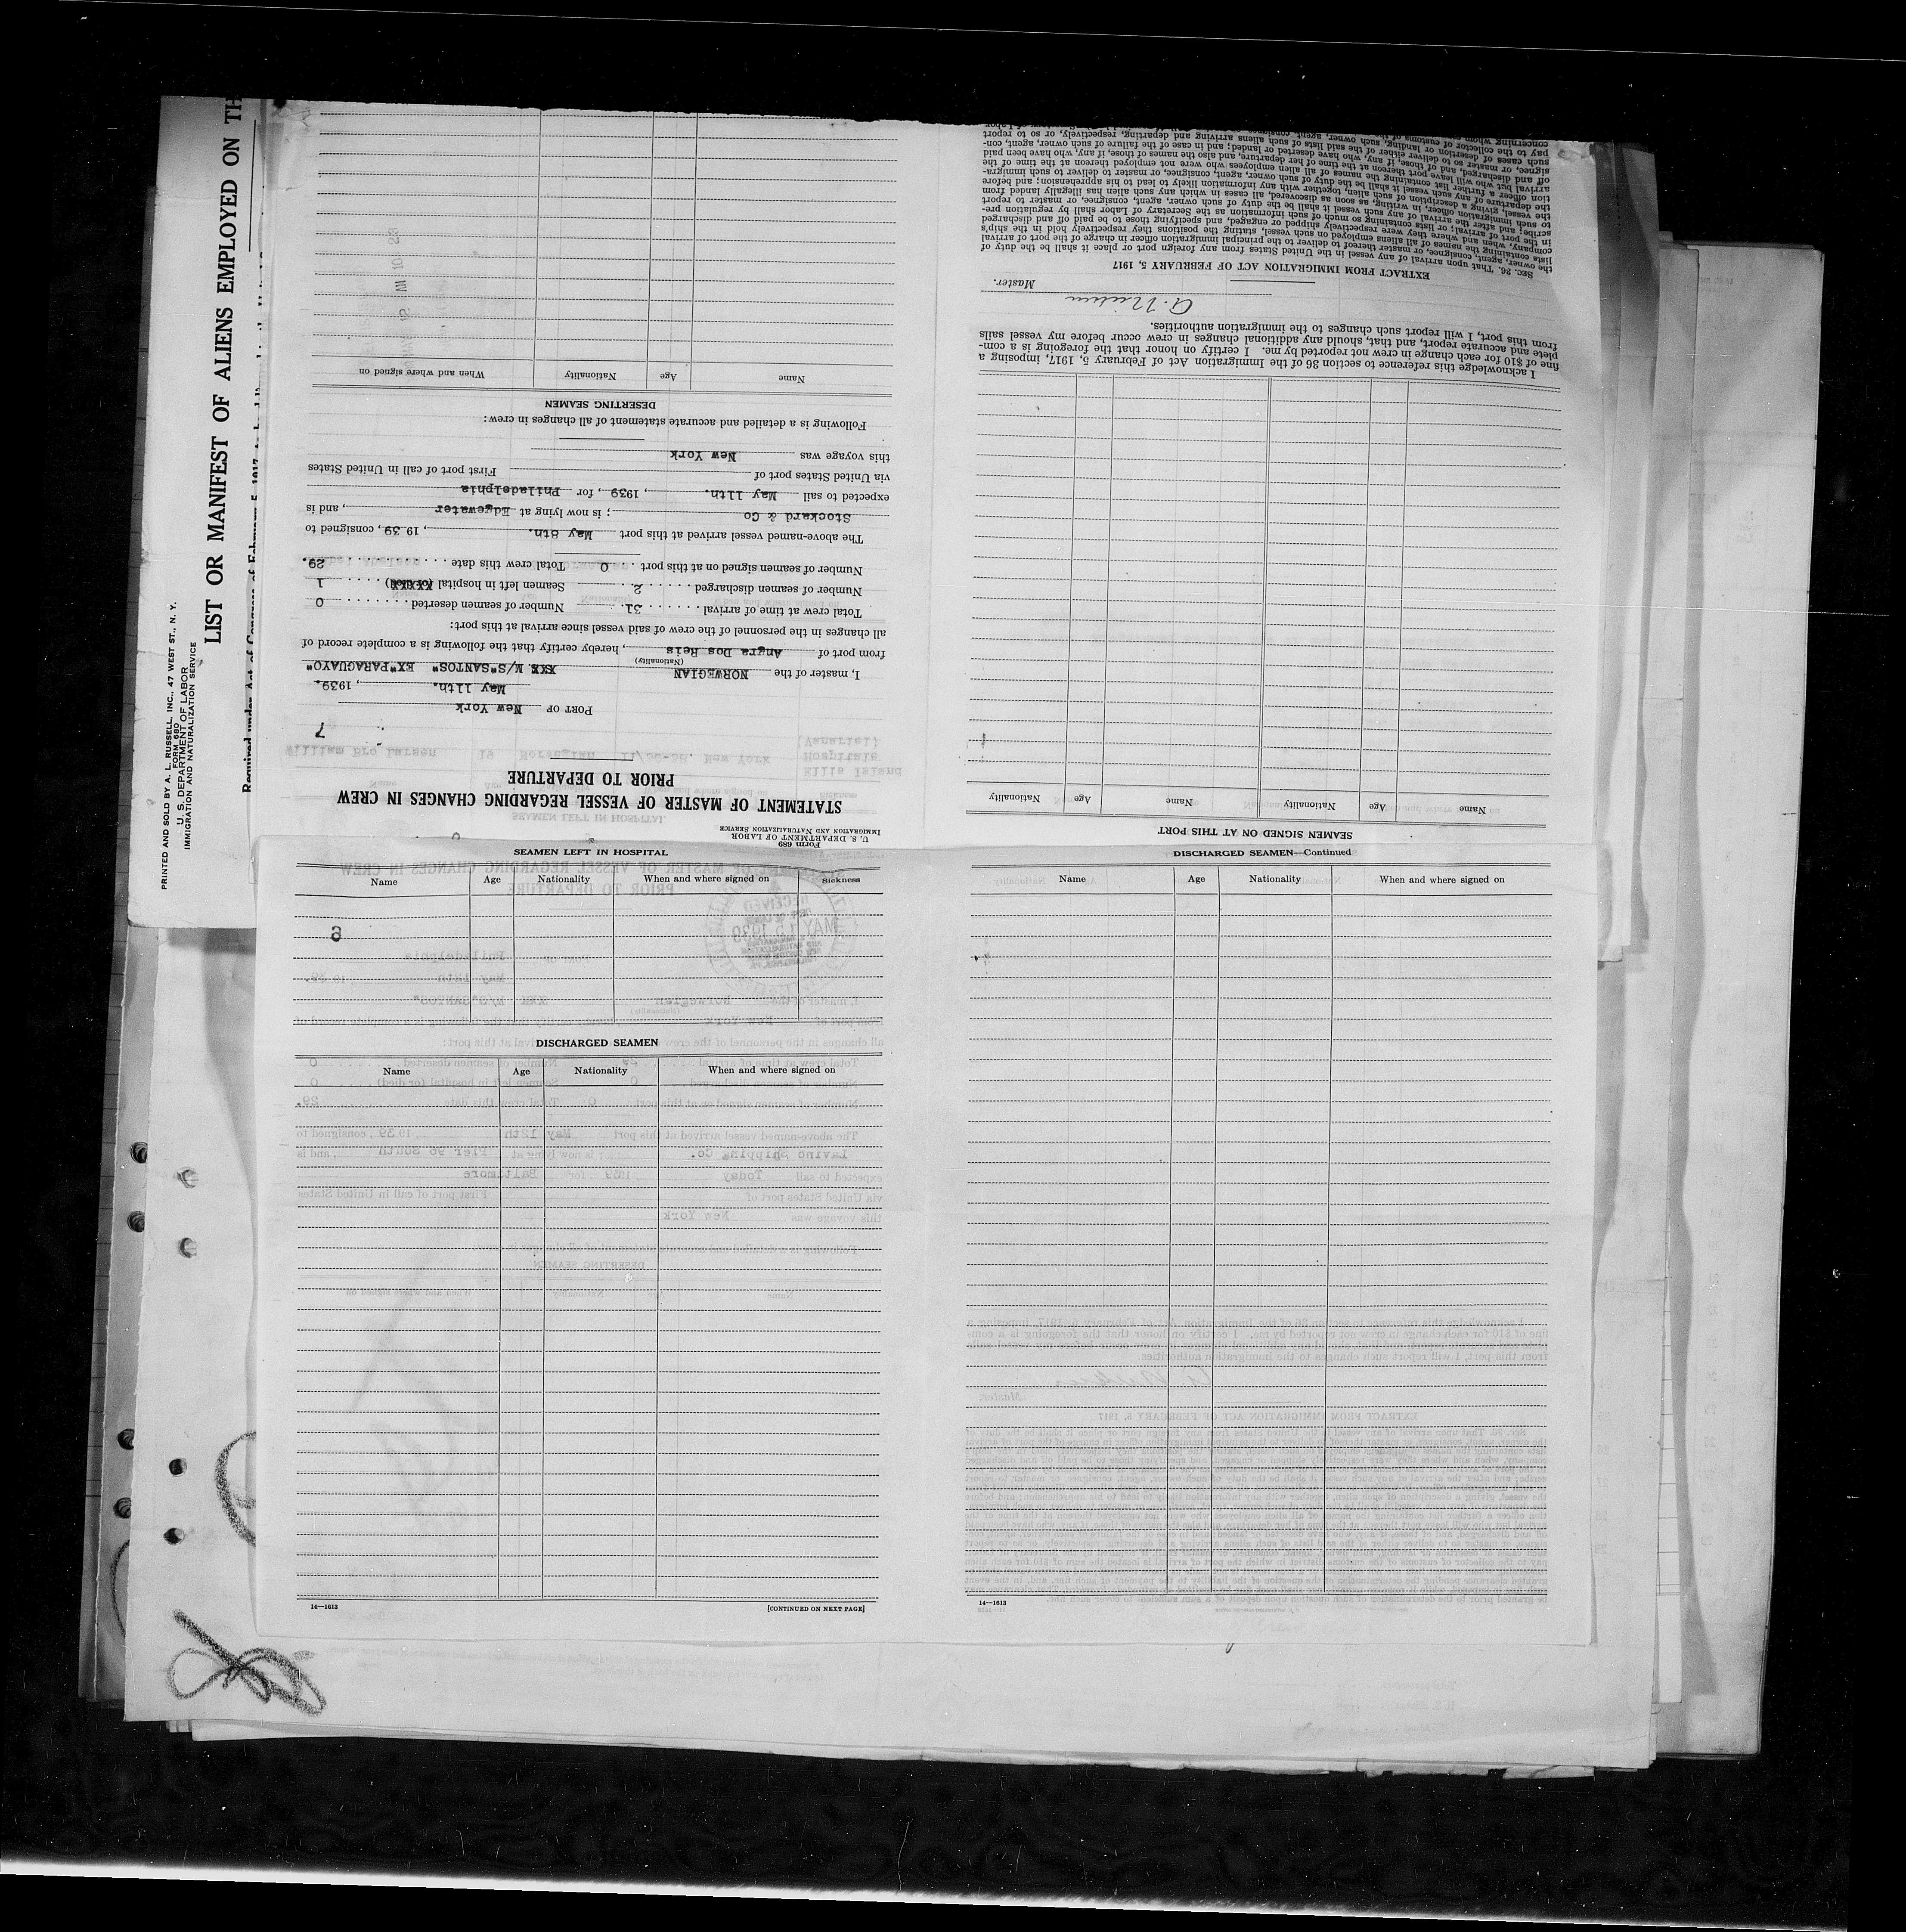 PRINTED AND SOLD BY A. L. RUSSELL, INC., 47 WEST ST., N. Y.
FORM 680
U. S. DEPARTMENT OF LABOR
IMMIGRATION AND NATURALIZATION SERVICE
LIST OR MANIFEST OF ALIENS EMPLOYED ON TH
Form 689
U. S. DEPARTMENT OF LABOR
IMMIGRATION AND NATURALIZATION SERVICE
STATEMENT OF MASTER OF VESSEL REGARDING CHANGES IN CREW
PRIOR TO DEPARTURE
7
PORT OF New York
May 11th. , 1939.
I, master of the NORWEGIAN XXX M/S"SANTOS" EX"PARAGUAYO"
(Nationality)
from port of Angra Dos Reis , hereby certify that the following is a complete record of
all changes in the personnel of the crew of said vessel since arrival at this port:
Total crew at time of arrival 31. Number of seamen deserted 0
Number of seamen discharged 2 Seamen left in hospital 1
Number of seamen signed on at this port 0 Total crew this date 29.
The above-named vessel arrived at this port May 8th. , 1939 , consigned to
Stockard & Co ; is now lying at Edgewater , and is
expected to sail May 11th. , 1939 , for Philadelphia
via United States port of First port of call in United States
this voyage was New York
Following is a detailed and accurate statement of all changes in crew:
DESERTING SEAMEN
Name Age Nationality When and where signed on
SEAMEN SIGNED ON AT THIS PORT
Name Age Nationality Name Age Nationality
I acknowledge this reference to section 36 of the Immigration Act of February 5, 1917, imposing a
fine of $10 for each change in crew not reported by me. I certify on honor that the foregoing is a com-
plete and accurate report, and that, should any additional changes in crew occur before my vessel sails
from this port, I will report such changes to the immigration authorities.
Master.
EXTRACT FROM IMMIGRATION ACT OF FEBRUARY 5, 1917
Sec. 36. That upon arrival of any vessel in the United States from any foreign port or place it shall be the duty of
the owner, agent, consignee, or master thereof to deliver to the principal immigration officer in charge of the port of arrival
lists containing the names of all aliens employed on such vessel, stating the positions they respectively hold in the ship's
company, when and where they were respectively shipped or engaged, and specifying those to be paid off and discharged
in the port of arrival; or lists containing so much of such information as the Secretary of Labor shall by regulation pre-
scribe; and after the arrival of any such vessel it shall be the duty of such owner, agent, consignee, or master to report
to such immigration officer, in writing, as soon as discovered, all cases in which any such alien has illegally landed from
the vessel, giving a description of such alien, together with any information likely to lead to his apprehension; and before
the departure of any such vessel it shall be the duty of such owner, agent, consignee, or master to deliver to such immigra-
tion officer a further list containing the names of all alien employees who were not employed thereon at the time of the
arrival but who will leave port thereon at the time of her departure, and also the names of those, if any, who have been paid
off and discharged, and of those, if any, who have deserted or landed; and in case of the failure of such owner, agent, con-
signee, or master so to deliver either of the said lists of such aliens arriving and departing, respectively, or so to report
such cases of desertion or landing, such owner, agent, consignee,
pay to the collector of customs of the
SEAMEN LEFT IN HOSPITAL
Name Age Nationality When and where signed on Sickness
6
DISCHARGED SEAMEN
Name Age Nationality When and where signed on
14—1613
[CONTINUED ON NEXT PAGE]
DISCHARGED SEAMEN—Continued
Name Age Nationality When and where signed on
14—1613